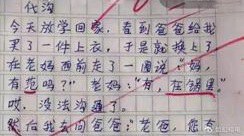 代沟
今天放学回家，看到爸爸给我
买了一件上衣，于是就换上了
在老妈面前走了一圈说：“妈，
有范吗？”老妈：“有，在锅里。”
哎，没法沟通了。
然后我去问爸爸：“老爸，您有